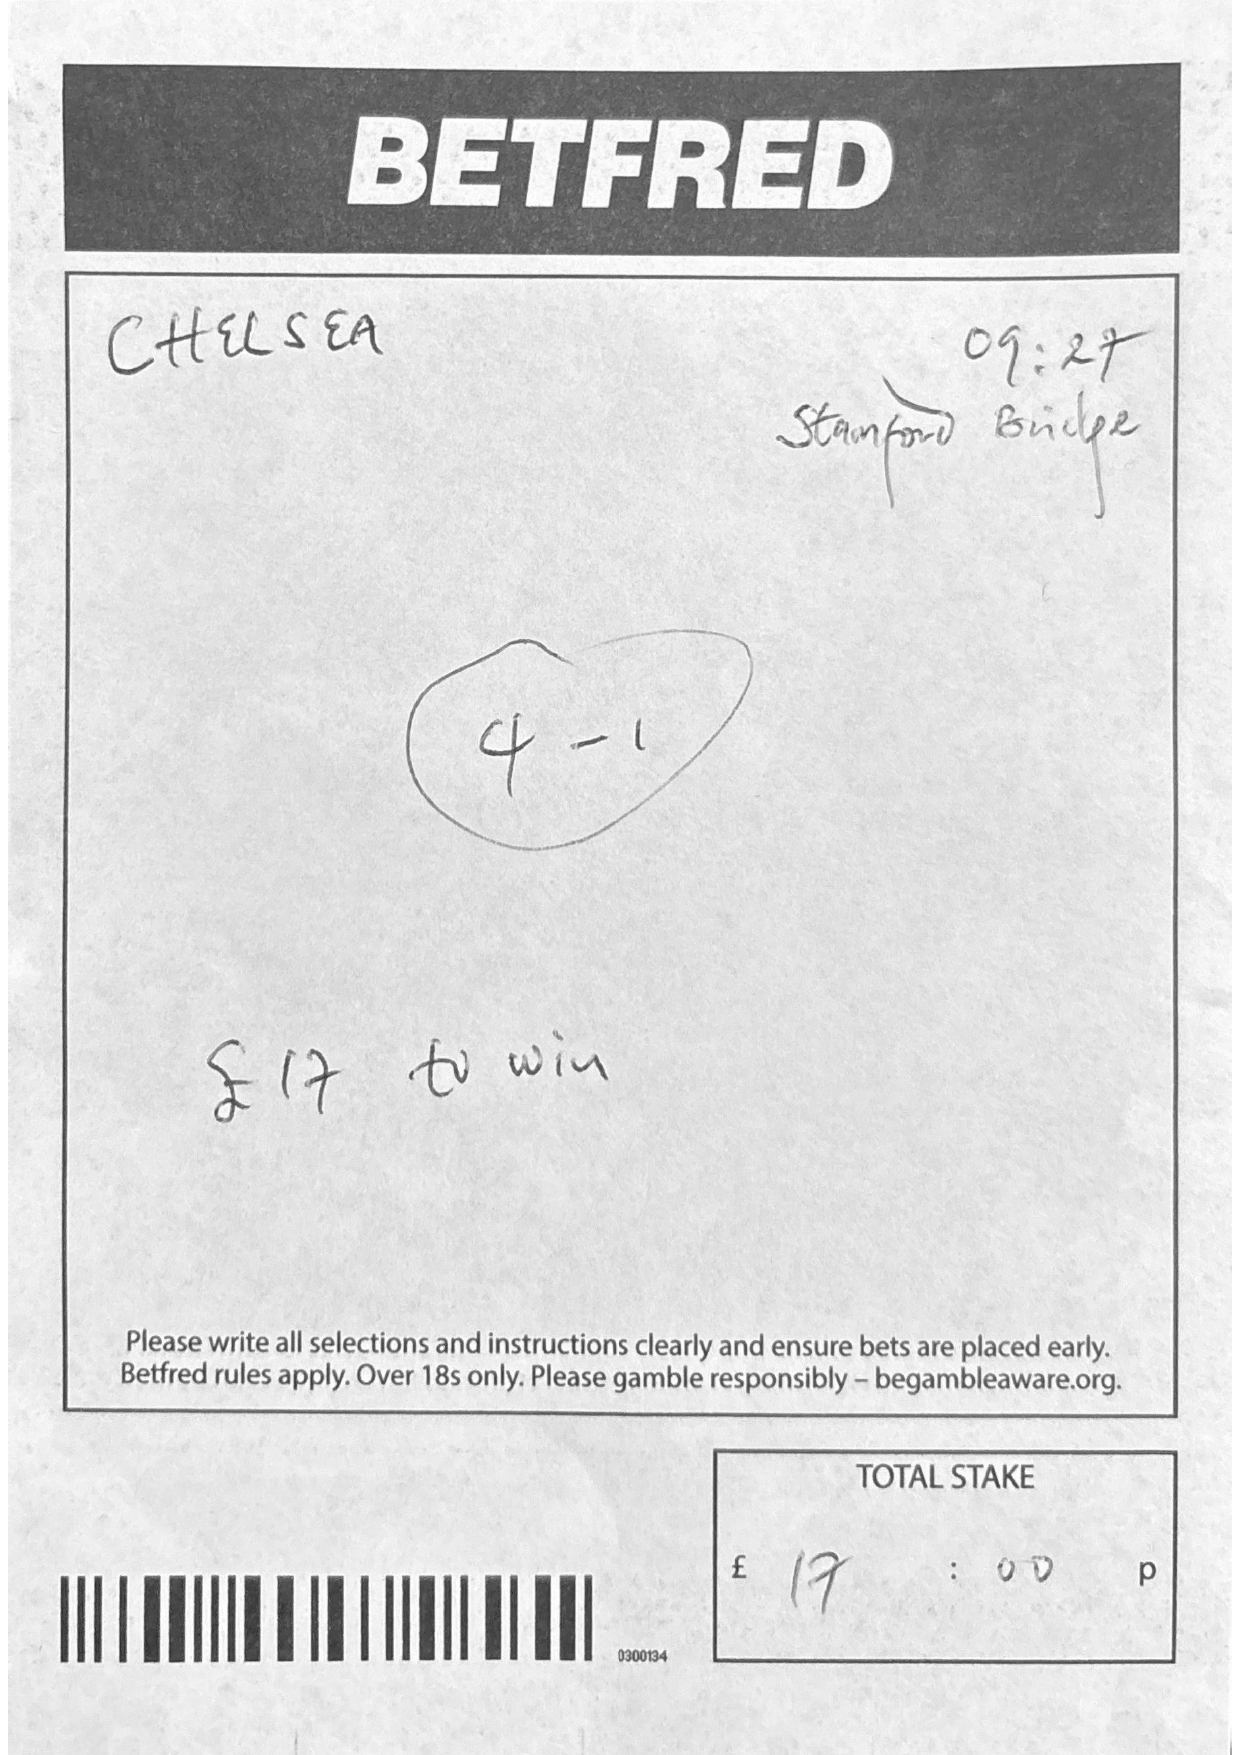 BETFRED
CHELSEA
09:27
Stamford Bridge
4-1
£17 to win
Please write all selections and instructions clearly and ensure bets are placed early.
Betfred rules apply. Over 18s only. Please gamble responsibly – begambleaware.org.
TOTAL STAKE
£ 17 : 00 p
0300134